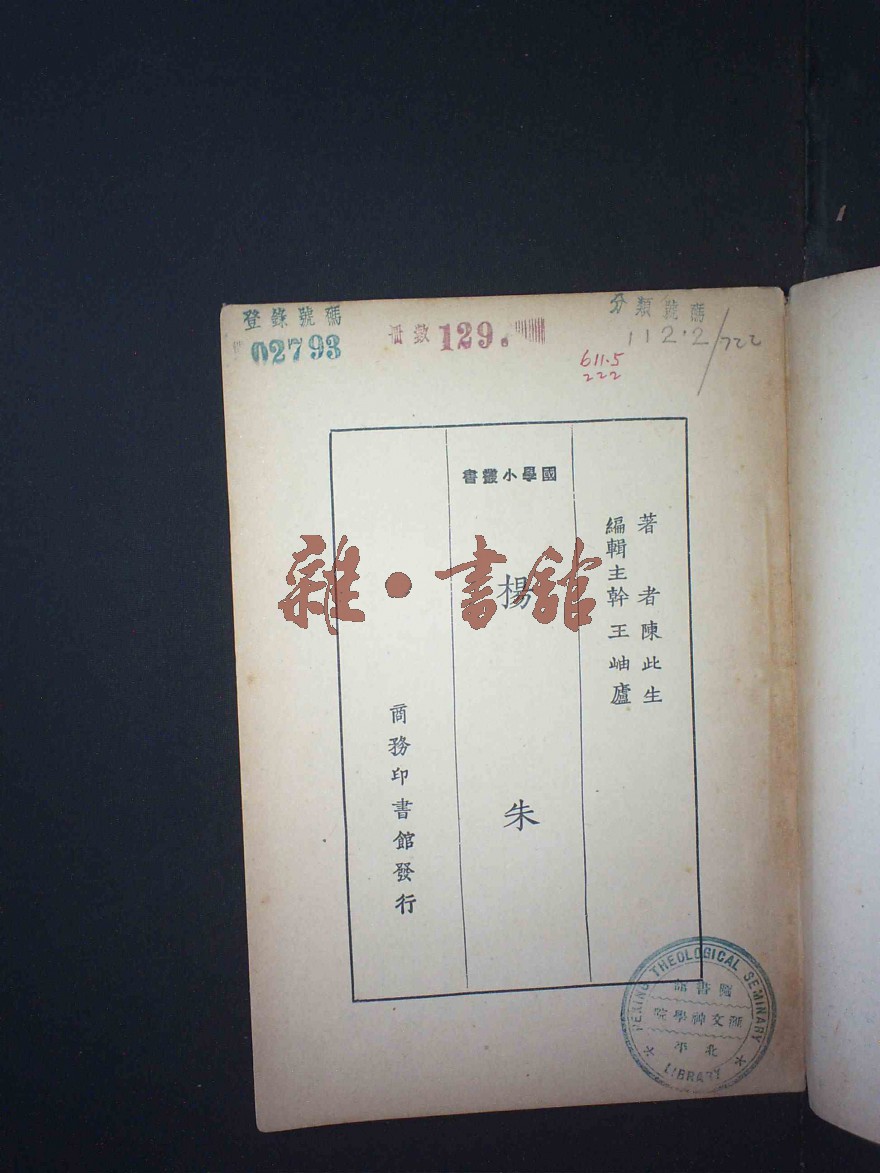 登錄號碼
02793
冊數 129.
分類號碼
112.2/722
611.5
222
國學小叢書
著者陳此生
編輯主幹王岫廬
楊朱
商務印書館發行
雜·書館
PEKING THEOLOGICAL SEMINARY
圖書館
滙文神學院
北平
LIBRARY